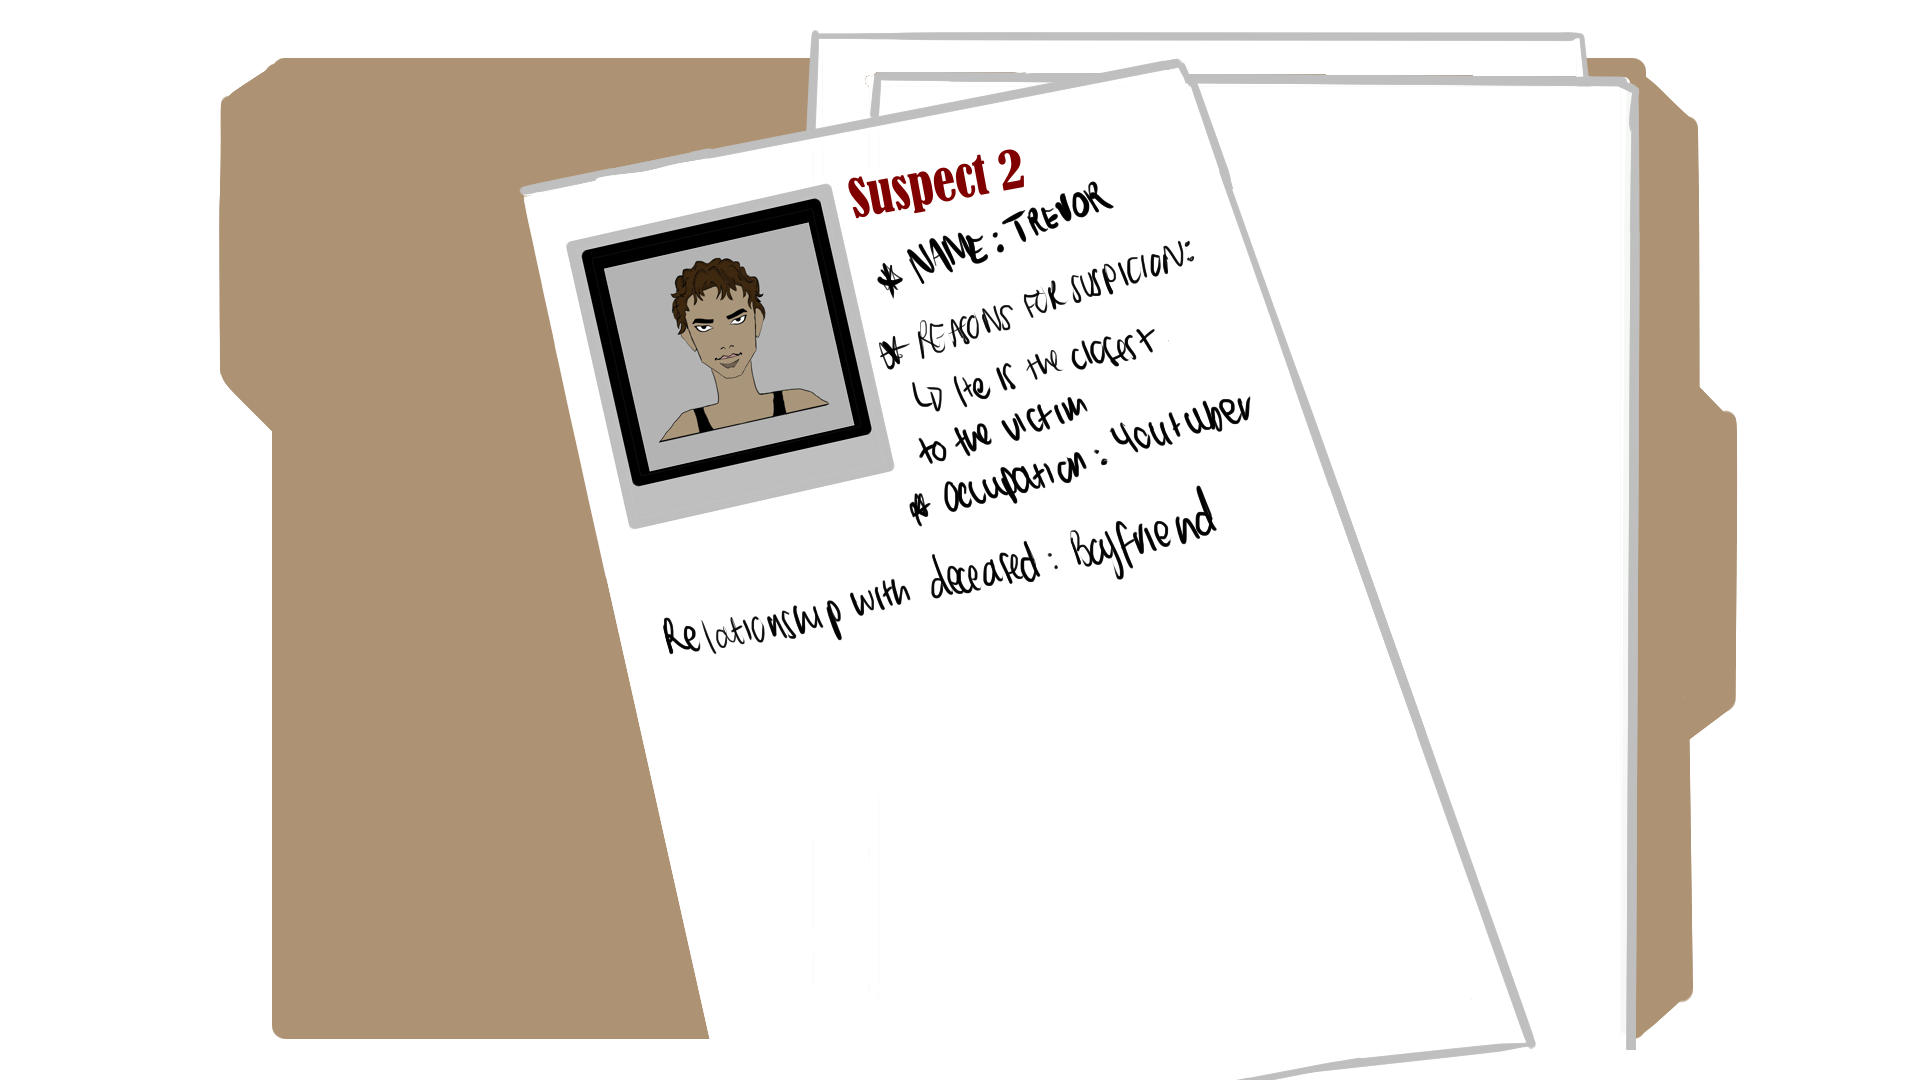 Suspect 2
* NAME: TREVOR
* REASONS FOR SUSPICION:
↳ He is the closest
to the victim
* occupation: Youtuber
Relationship with deceased: Boyfriend